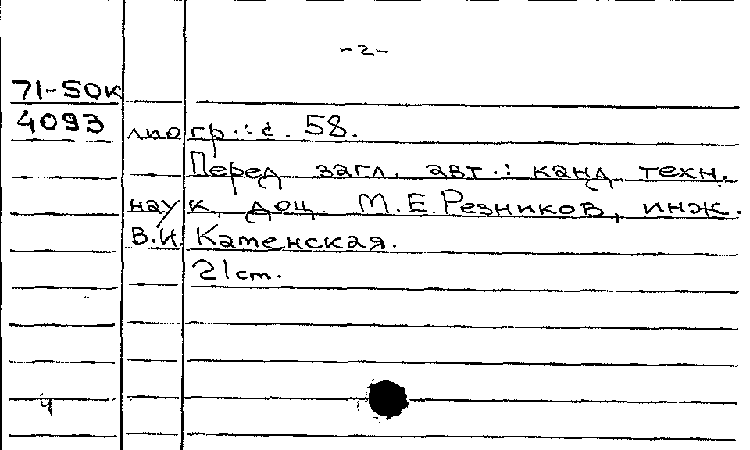 -2-
71-50к
4093 лиогр.: с. 58.
Перед загл. авт.: канд. техн.
наук, доц. М.Е. Резников, инж.
В.И. Каменская.
21 ст.
ч